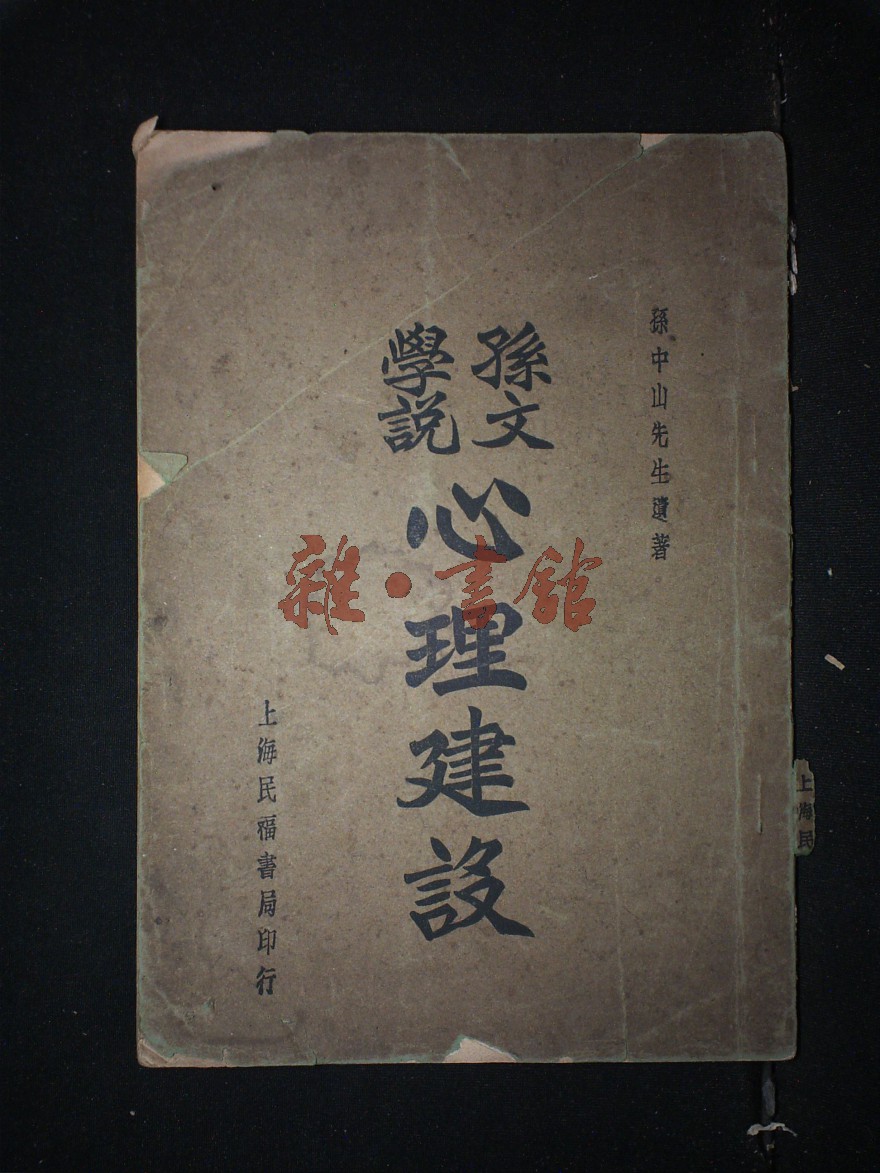 孫中山先生遺著
孫文
學説
心理建設
上海民福書局印行
上海民
雜·書館